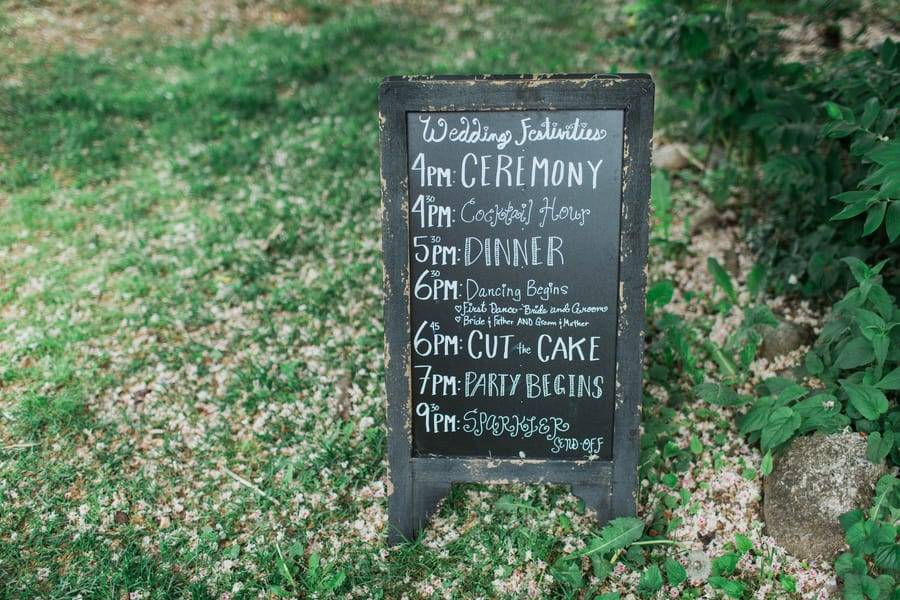 Wedding Festivities
4PM: CEREMONY
4:30PM: Cocktail Hour
5:30PM: DINNER
6:30PM: Dancing Begins
♡First Dance-Bride and Groom
♡Bride & Father AND Groom & Mother
6:45PM: CUT the CAKE
7PM: PARTY BEGINS
9:30PM: SPARKLER
SEND-OFF